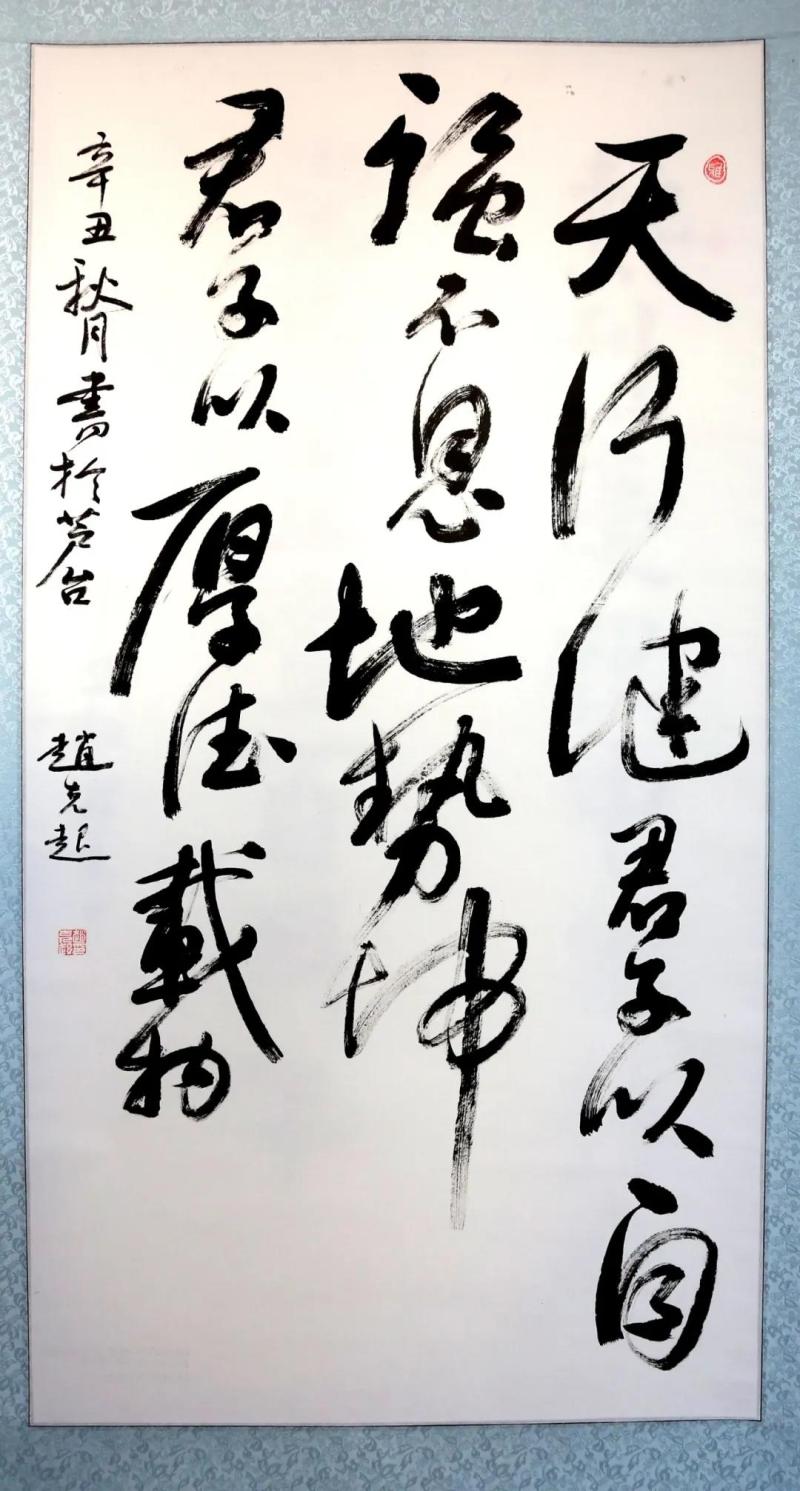 天行健君子以自
强不息地势坤
君子以厚德載物
辛丑秋月書於芦台
趙克起